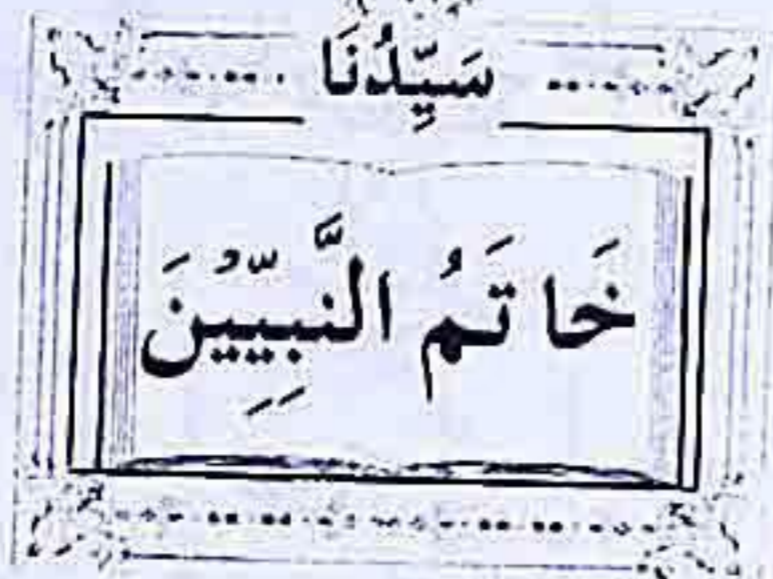 سَيِّدُنَا
خَاتَمُ النَّبِيِّيْنَ